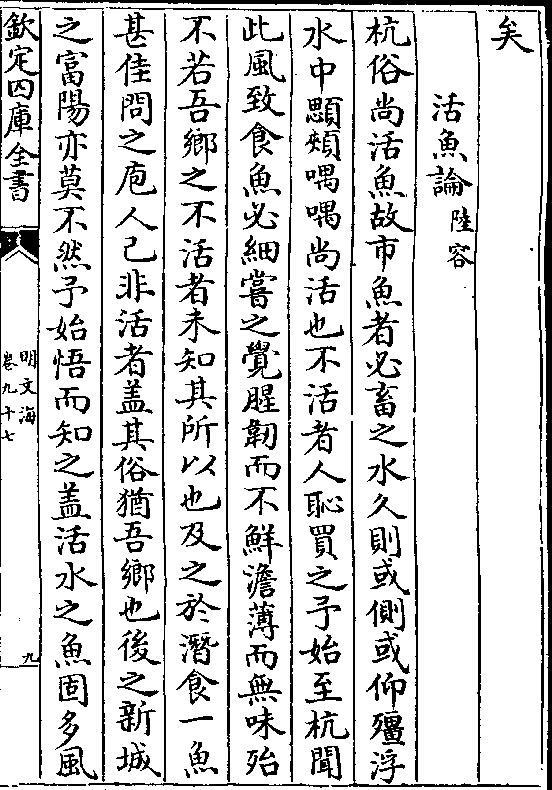 矣
活魚論 陸容
杭俗尚活魚故市魚者必畜之水久則或側或仰殭浮
水中顋頰喁喁尚活也不活者人恥買之予始至杭聞
此風致食魚必細嘗之覺腥韌而不鮮澹薄而無味殆
不若吾鄉之不活者未知其所以也及之於潛食一魚
甚佳問之庖人己非活者盖其俗猶吾鄉也後之新城
之富陽亦莫不然予始悟而知之盖活水之魚固多風
欽定四庫全書
明文海
卷九十七
九